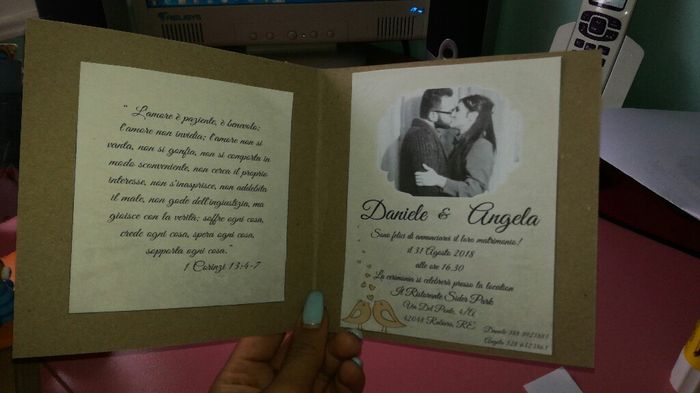 " L'amore è paziente, è benevolo;
l'amore non invidia; l'amore non si
vanta, non si gonfia, non si comporta in
modo sconveniente, non cerca il proprio
interesse, non s'inasprisce, non addebita
il male, non gode dell'ingiustizia, ma
gioisce con la verità; soffre ogni cosa,
crede ogni cosa, spera ogni cosa,
sopporta ogni cosa."
1 Corinzi 13:4-7
Daniele & Angela
Sono felici di annunciarvi il loro matrimonio!
il 31 Agosto 2018
alle ore 16.30
La cerimonia si celebrerà presso la location
Il Ristorante Sider Park
Via Del Ponte, 4/A
42048 Rubiera, RE
Daniele
Angela